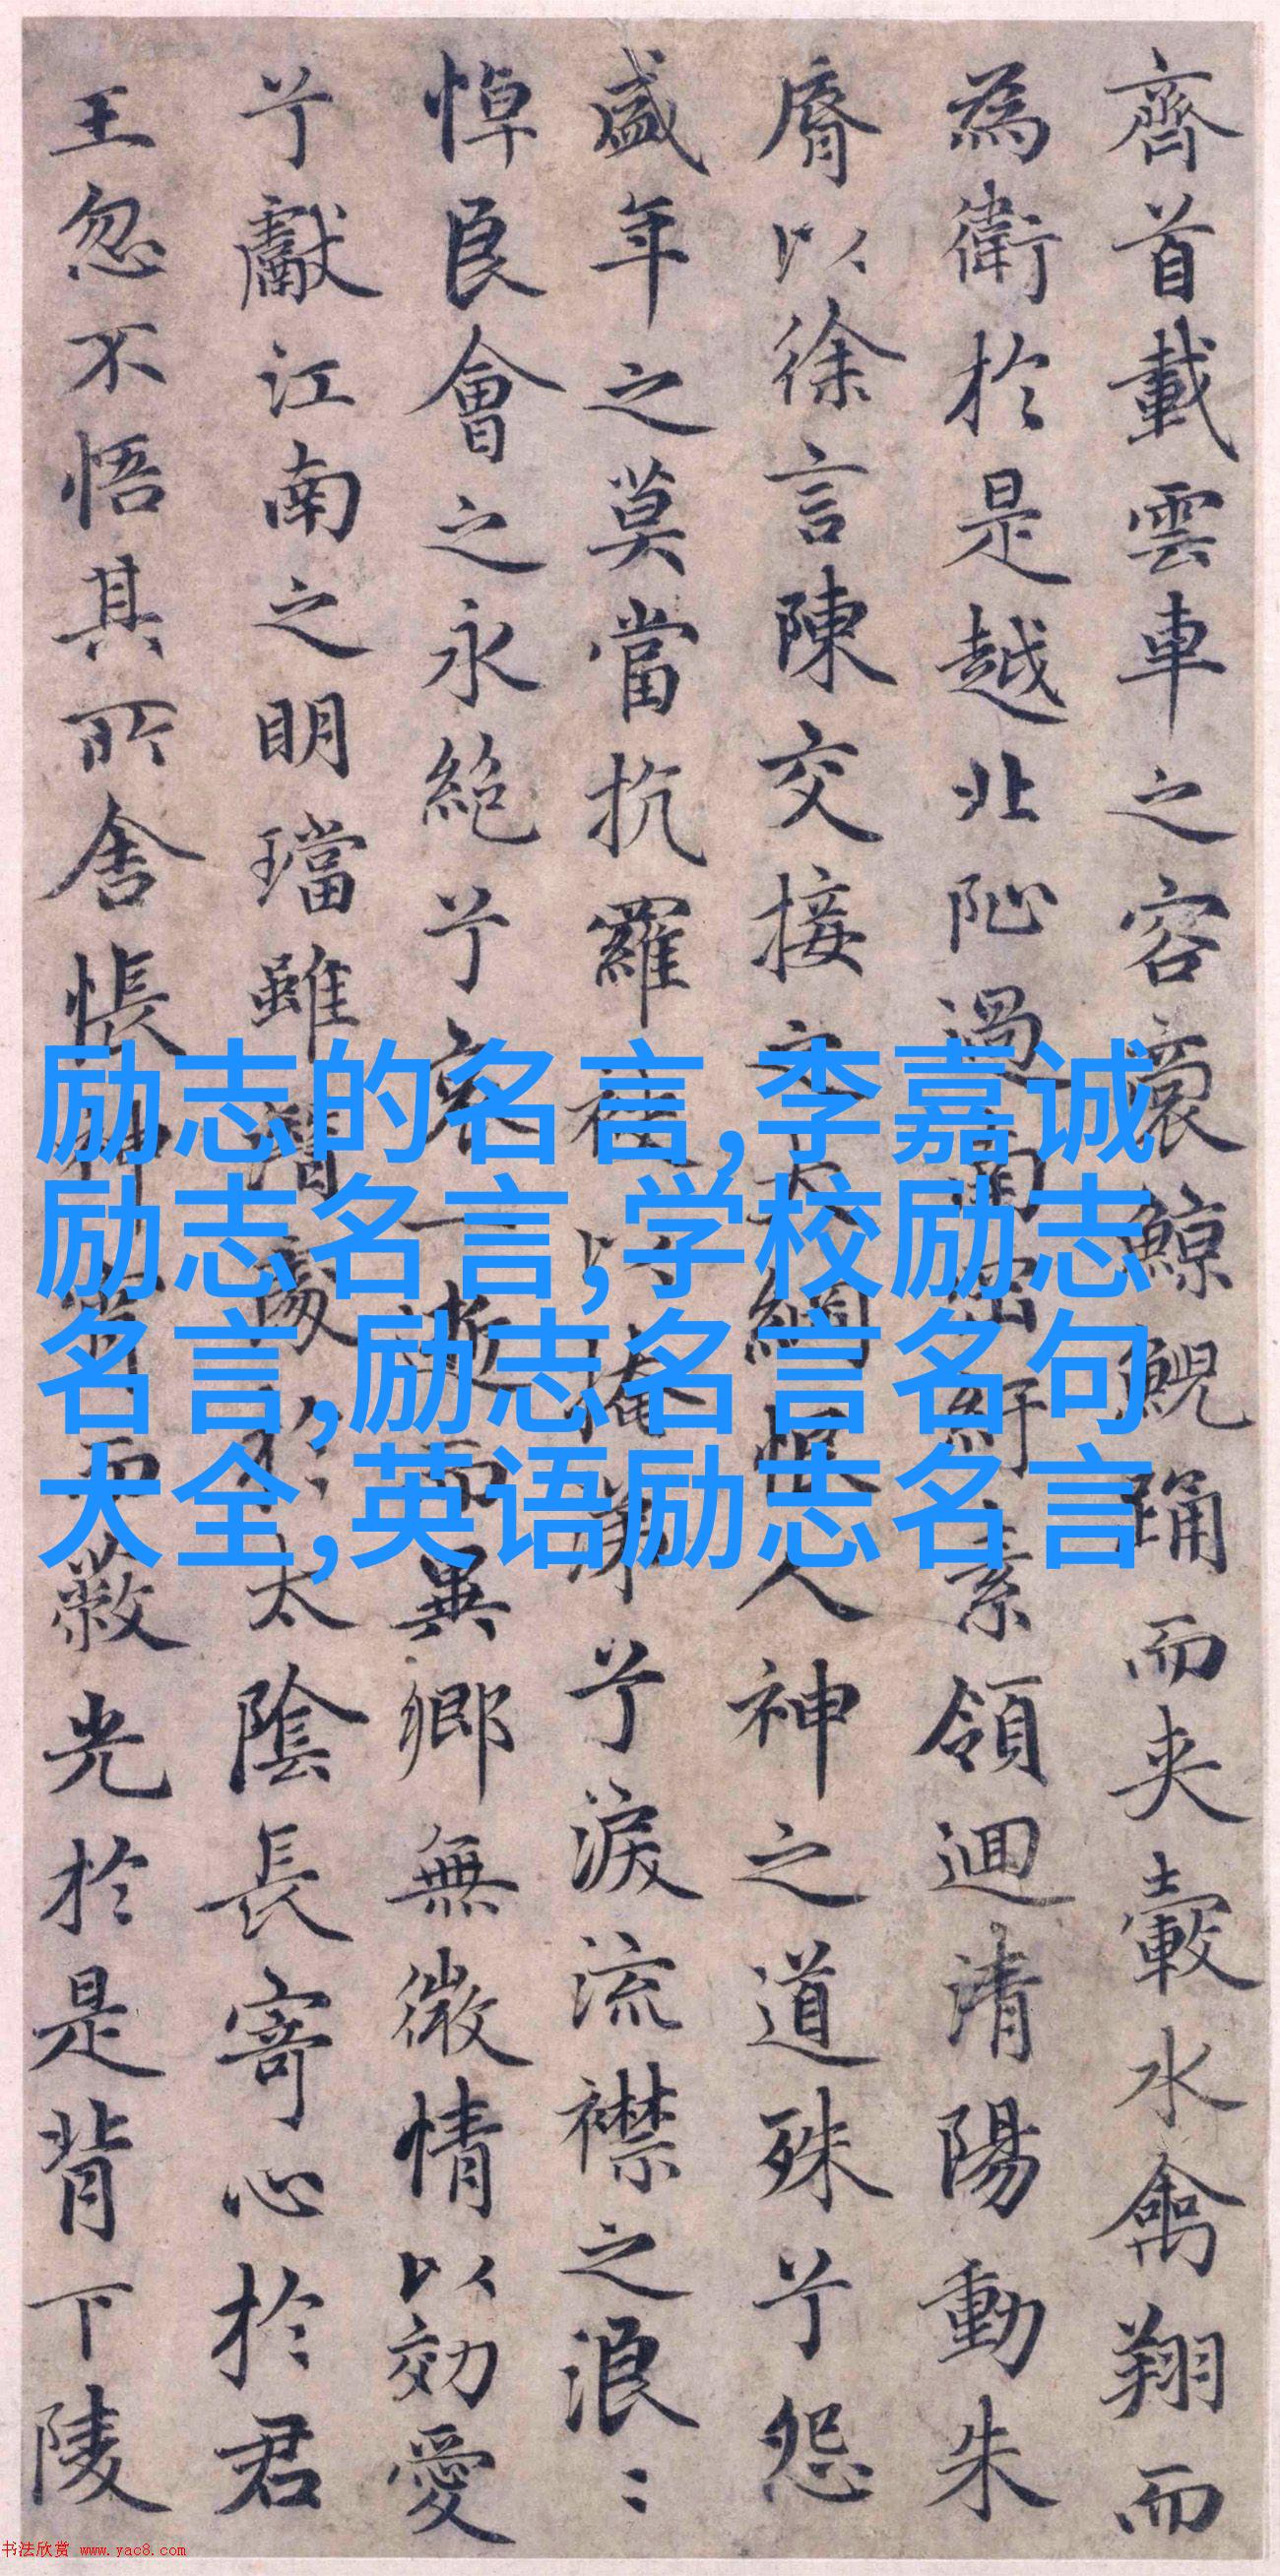 齊首載雲車之容裔鯨鯢踊而夾轂水禽翔而
為衛於是越北沚過南岡紆素領迴清陽動朱
脣以徐言陳交接之大綱恨人神之道殊兮怨
盛年之莫當抗羅袂以掩涕兮淚流襟之浪〻
悼良會之永絕兮哀一逝而異鄉無微情以効愛
兮獻江南之明璫雖潛處於太陰長寄心於君
王忽不悟其所舍悵神宵而蔽光於是背下陵
励志的名言,李嘉诚
励志名言,学校励志
名言,励志名言名句
大全,英语励志名言
书法欣赏 www.yac8.com